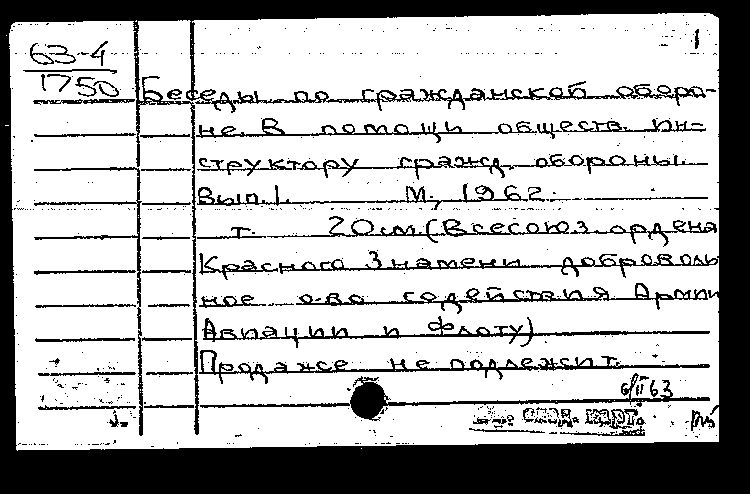 1
63-4
1750
Беседы по гражданской оборо-
не. В помощи обществ. ин=
структору гражд. обороны.
Вып. 1. М., 1962.
т. 20см (Всесоюз. ордена
Красного Знамени доброволь
ное о-во содействия Армии
Авиации и Флоту)
Продаже не подлежит.
6/II 63